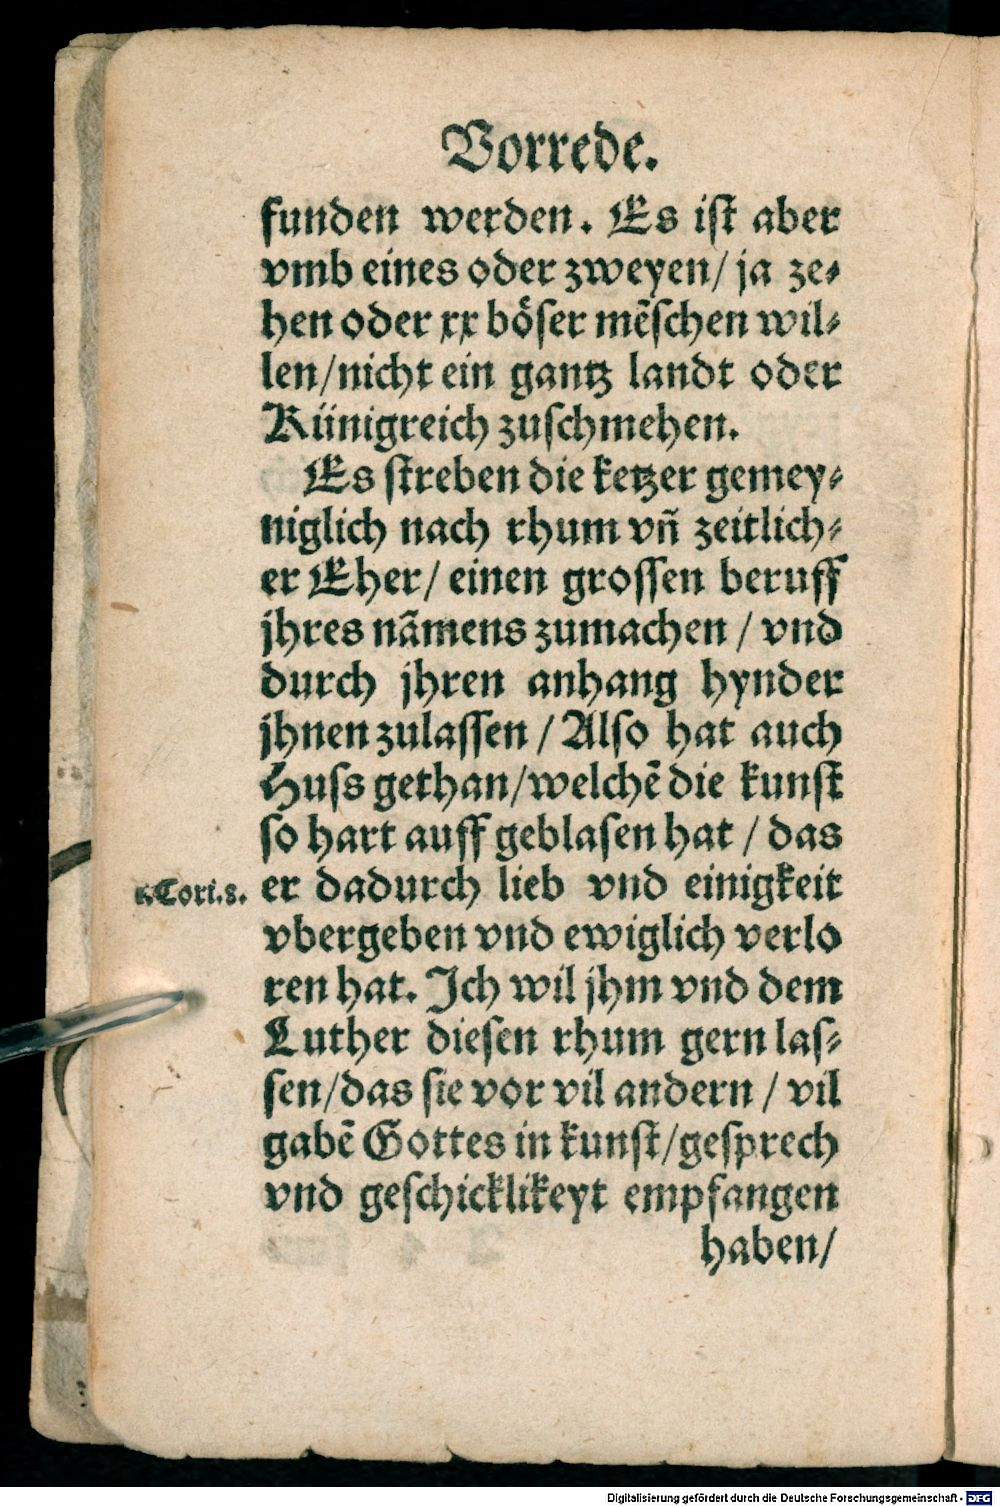 Vorrede.
funden werden. Es ist aber
vmb eines oder zweyen/ ja ze⸗
hen oder xx böser mẽschen wil⸗
len/nicht ein gantz landt oder
Künigreich zuschmehen.
Es streben die ketzer gemey⸗
niglich nach rhum vñ zeitlich⸗
er Eher/ einen grossen beruff
jhres nãmens zumachen / vnd
durch jhren anhang hynder
jhnen zulassen / Also hat auch
Huss gethan/welchẽ die kunst
so hart auff geblasen hat / das
1.Cori.8.
er dadurch lieb vnd einigkeit
vbergeben vnd ewiglich verlo
ren hat. Ich wil jhm vnd dem
Luther diesen rhum gern las⸗
sen/das sie vor vil andern / vil
gabẽ Gottes in kunst/gesprech
vnd geschicklikeyt empfangen
haben/
Digitalisierung gefördert durch die Deutsche Forschungsgemeinschaft - DFG